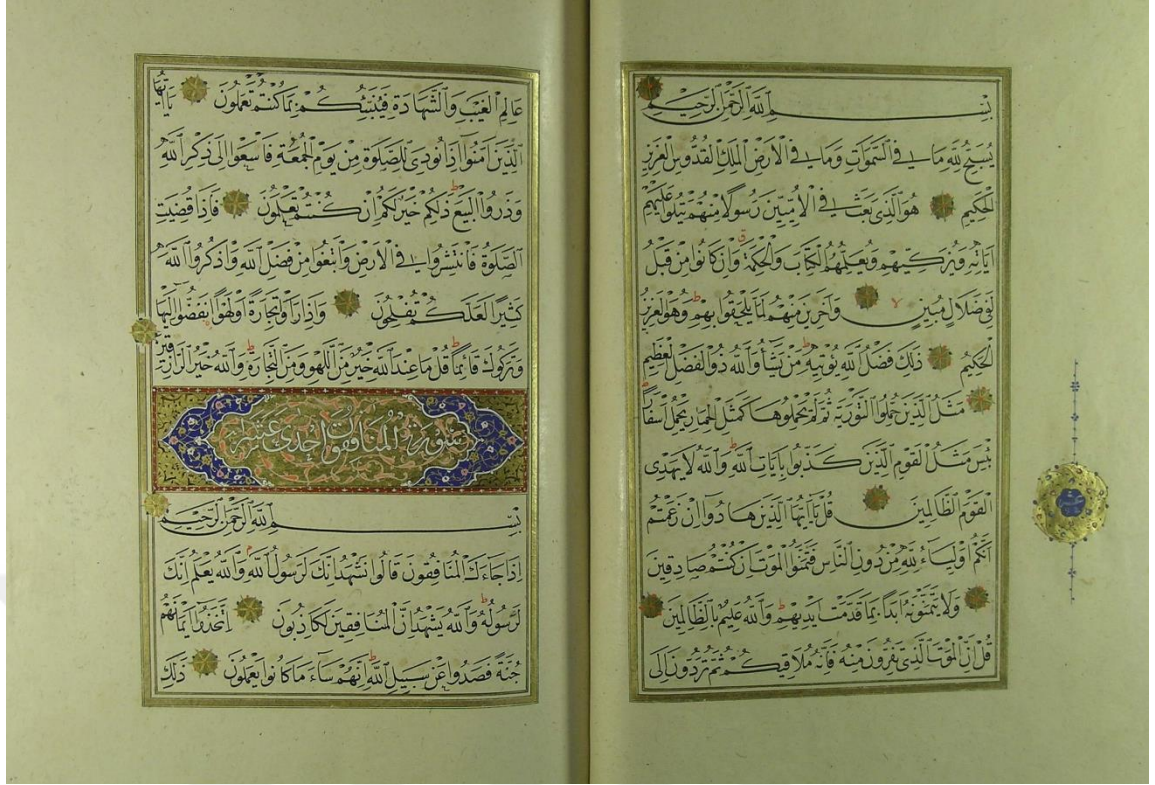 بِسْمِ اللّٰهِ الرَّحْمٰنِ الرَّحِيمِ
يُسَبِّحُ لِلّٰهِ مَا فِي السَّمٰوَاتِ وَمَا فِي الْاَرْضِ الْمَلِكِ الْقُدُّوسِ الْعَزِيزِ
الْحَكِيمِ هُوَ الَّذِي بَعَثَ فِي الْاُمِّيِّينَ رَسُولًا مِنْهُمْ يَتْلُوا عَلَيْهِمْ
اٰيَاتِهِ وَيُزَكِّيهِمْ وَيُعَلِّمُهُمُ الْكِتَابَ وَالْحِكْمَةَ وَاِنْ كَانُوا مِنْ قَبْلُ
لَفِي ضَلَالٍ مُبِينٍ وَاٰخَرِينَ مِنْهُمْ لَمَّا يَلْحَقُوا بِهِمْ وَهُوَ الْعَزِيزُ
الْحَكِيمُ ذٰلِكَ فَضْلُ اللّٰهِ يُؤْتِيهِ مَنْ يَشَاءُ وَاللّٰهُ ذُو الْفَضْلِ الْعَظِيمِ
مَثَلُ الَّذِينَ حُمِّلُوا التَّوْرٰيةَ ثُمَّ لَمْ يَحْمِلُوهَا كَمَثَلِ الْحِمَارِ يَحْمِلُ اَسْفَارًا
بِئْسَ مَثَلُ الْقَوْمِ الَّذِينَ كَذَّبُوا بِاٰيَاتِ اللّٰهِ وَاللّٰهُ لَا يَهْدِي
الْقَوْمَ الظَّالِمِينَ قُلْ يَا اَيُّهَا الَّذِينَ هَادُوا اِنْ زَعَمْتُمْ
اَنَّكُمْ اَوْلِيَاءُ لِلّٰهِ مِنْ دُونِ النَّاسِ فَتَمَنَّوُا الْمَوْتَ اِنْ كُنْتُمْ صَادِقِينَ
وَلَا يَتَمَنَّوْنَهُ اَبَدًا بِمَا قَدَّمَتْ اَيْدِيهِمْ وَاللّٰهُ عَلِيمٌ بِالظَّالِمِينَ
قُلْ اِنَّ الْمَوْتَ الَّذِي تَفِرُّونَ مِنْهُ فَاِنَّهُ مُلَاقِيكُمْ ثُمَّ تُرَدُّونَ اِلٰى
عَالِمِ الْغَيْبِ وَالشَّهَادَةِ فَيُنَبِّئُكُمْ بِمَا كُنْتُمْ تَعْمَلُونَ يَا اَيُّهَا
الَّذِينَ اٰمَنُوا اِذَا نُودِيَ لِلصَّلٰوةِ مِنْ يَوْمِ الْجُمُعَةِ فَاسْعَوْا اِلٰى ذِكْرِ اللّٰهِ
وَذَرُوا الْبَيْعَ ذٰلِكُمْ خَيْرٌ لَكُمْ اِنْ كُنْتُمْ تَعْلَمُونَ فَاِذَا قُضِيَتِ
الصَّلٰوةُ فَانْتَشِرُوا فِي الْاَرْضِ وَابْتَغُوا مِنْ فَضْلِ اللّٰهِ وَاذْكُرُوا اللّٰهَ
كَثِيرًا لَعَلَّكُمْ تُفْلِحُونَ وَاِذَا رَاَوْا تِجَارَةً اَوْ لَهْوًا انْفَضُّوا اِلَيْهَا
وَتَرَكُوكَ قَائِمًا قُلْ مَا عِنْدَ اللّٰهِ خَيْرٌ مِنَ اللَّهْوِ وَمِنَ التِّجَارَةِ وَاللّٰهُ خَيْرُ الرَّازِقِينَ
سورة المنافقون احدى عشرة
بِسْمِ اللّٰهِ الرَّحْمٰنِ الرَّحِيمِ
اِذَا جَاءَكَ الْمُنَافِقُونَ قَالُوا نَشْهَدُ اِنَّكَ لَرَسُولُ اللّٰهِ وَاللّٰهُ يَعْلَمُ اِنَّكَ
لَرَسُولُهُ وَاللّٰهُ يَشْهَدُ اِنَّ الْمُنَافِقِينَ لَكَاذِبُونَ اِتَّخَذُوا اَيْمَانَهُمْ
جُنَّةً فَصَدُّوا عَنْ سَبِيلِ اللّٰهِ اِنَّهُمْ سَاءَ مَا كَانُوا يَعْمَلُونَ ذٰلِكَ